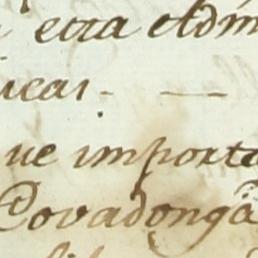 esta Adm
icas.
ue importa
Covadonga